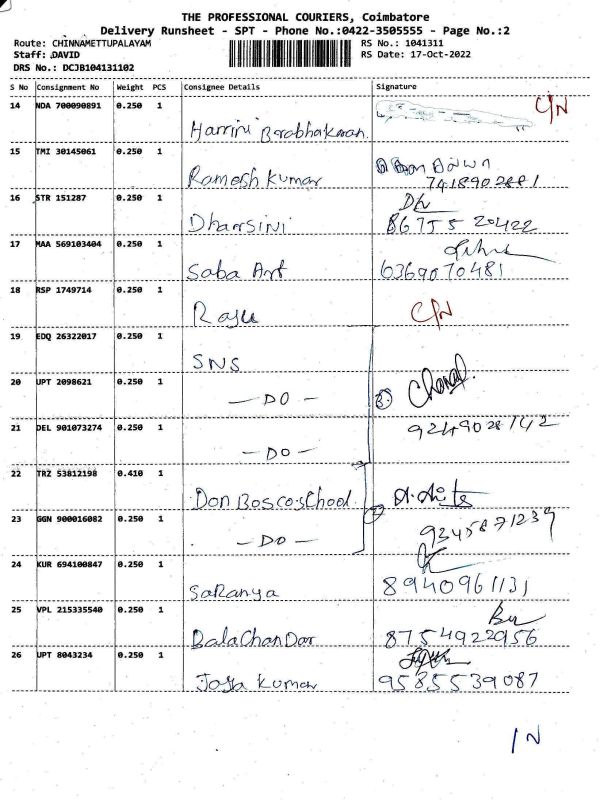 THE PROFESSIONAL COURIERS, Coimbatore
Delivery Runsheet - SPT - Phone No.:0422-3505555 - Page No.:2
Route: CHINNAMETTUPALAYAM RS No.: 1041311
Staff: DAVID RS Date: 17-Oct-2022
DRS No.: DCJB104131102
S No Consignment No Weight PCS Consignee Details Signature
14 NDA 700090891 0.250 1 C/N
Harrini Prabhakaran
15 TMI 30145061 0.250 1
Ramesh Kumar 7418902881
16 STR 151287 0.250 1
Dharsini 86755 20422
17 MAA 569103404 0.250 1
Saba Art 6369070481
18 RSP 1749714 0.250 1
Raju C/N
19 EDQ 26322017 0.250 1
SNS
20 UPT 2098621 0.250 1
— DO — 3.
21 DEL 901073274 0.250 1 9249028142
— DO —
22 TRZ 53812198 0.410 1
Don Bosco School 2
23 GGN 900016082 0.250 1 9345871239
— DO —
24 KUR 694100847 0.250 1
SaRanya 8940961131
25 VPL 215335540 0.250 1
BalaChanDar 8754922956
26 UPT 8043234 0.250 1
Jaya Kumar 9585539087
/ N